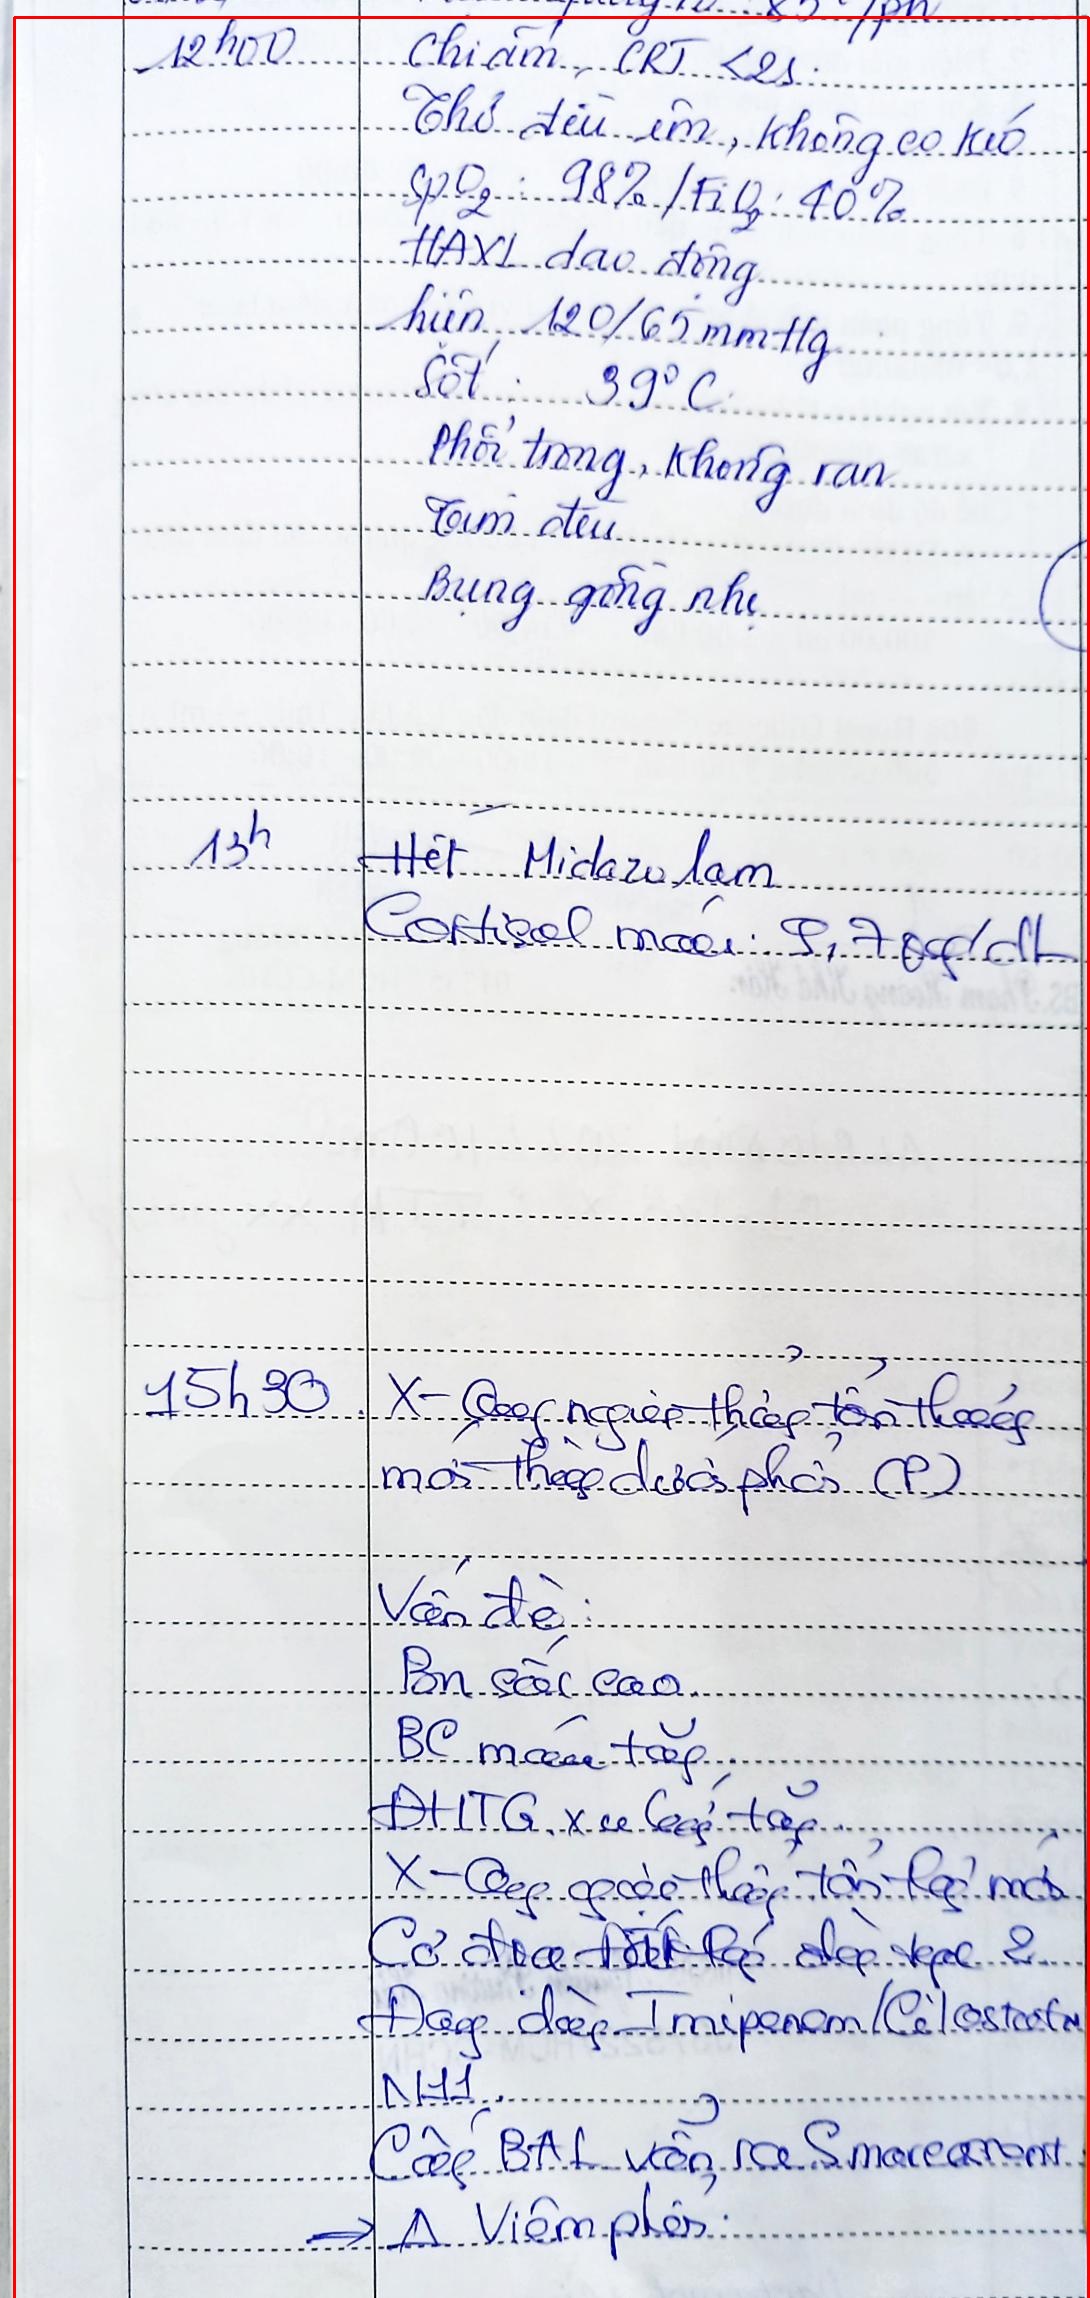 85 /ph
12h00 Chi ấm, CRT <2s.
Thở đều êm, không co kéo
SpO2 : 98% / FiO2 : 40%
HAXL dao động
hiện 120/65 mmHg
Sốt : 39°C
Phổi trong, không ran
Tim đều
Bụng gồng nhẹ
13h Hết Midazolam
Cortisol máu: 9,7 µg/dL
15h30 X-Quang ngực thẳng tổn thương
mới thùy dưới phổi (P)
Vấn đề:
Bn sốt cao
BC máu tăng
ĐHTG xu hướng tăng
X-Quang ngực thẳng tổn thg mới
Cơ địa
Đang dùng Imipenem/Cilastatin
N11
Cấy BAL vẫn ra S marcescens
→ Δ Viêm phổi